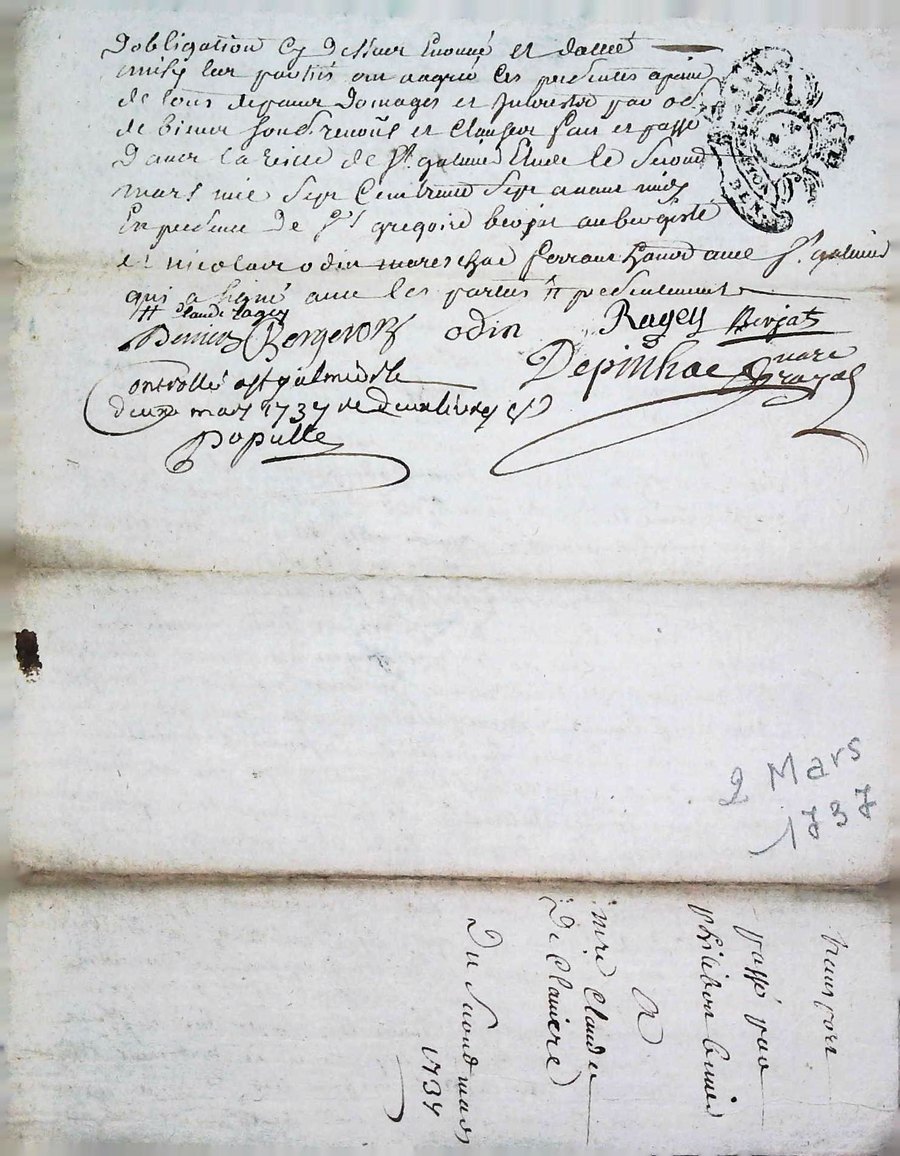 d'obligation cy dessus enoncé et datteé
ainsy les parties ont aggreé ces presentes a peine
de tous depans domages et interestz par ob.
de biens soub. renon. et clauses fait et passé
dans la ville de St galmier Etude le second
mars mil sept cent trente sept avant midy
En presence de Srs gregoire berjat aubergiste
et nicolas odin mareschal ferrant habitant audt St galmier
qui a signé avec les parties # presentement
# claude ragey
Bergeron odin Ragey Berjat
Depinhac
Controllé a St galmier le
deux mars 1737 re deux livres
Populle
2 Mars
1737
transport
passé par
philibert
A
mre claude
De
Du second mars
1737